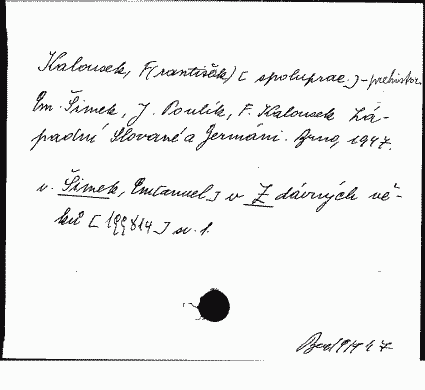 Kalousek, F[rantišek] [spoluprac.] - prehistor.
Em. Šimek, J. Poulík, F. Kalousek Zá-
padní Slované a Germáni. Brno, 1947.
v. Šimek, Em[anuel] v Z dávných vě-
ků [199814] sv. 1.